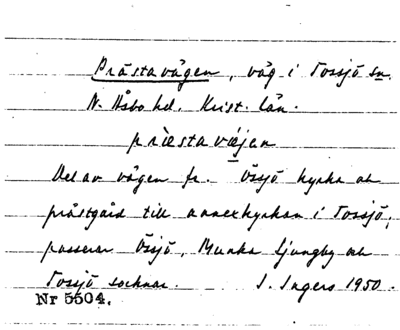 Prästavägen, väg i Tossjö sn.
N. Åsbo hd. Krist. län.
priestavæjen
Del av vägen fr. Össjö kyrka och
prästgård till annexkyrkan i Tossjö;
passerar Össjö, Munka Ljungby och
Tossjö socknar. I. Ingers 1950.
Nr 5504.